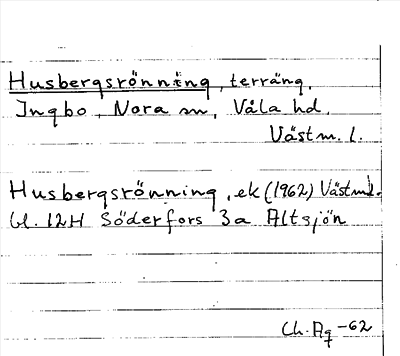 Husbergsrönning, terräng,
Ingbo, Nora sn, Våla hd,
Västm. l.
Husbergsrönning, ek (1962) Västml.
bl. 12H Söderfors 3a Altsjön
Ch. Ag -62